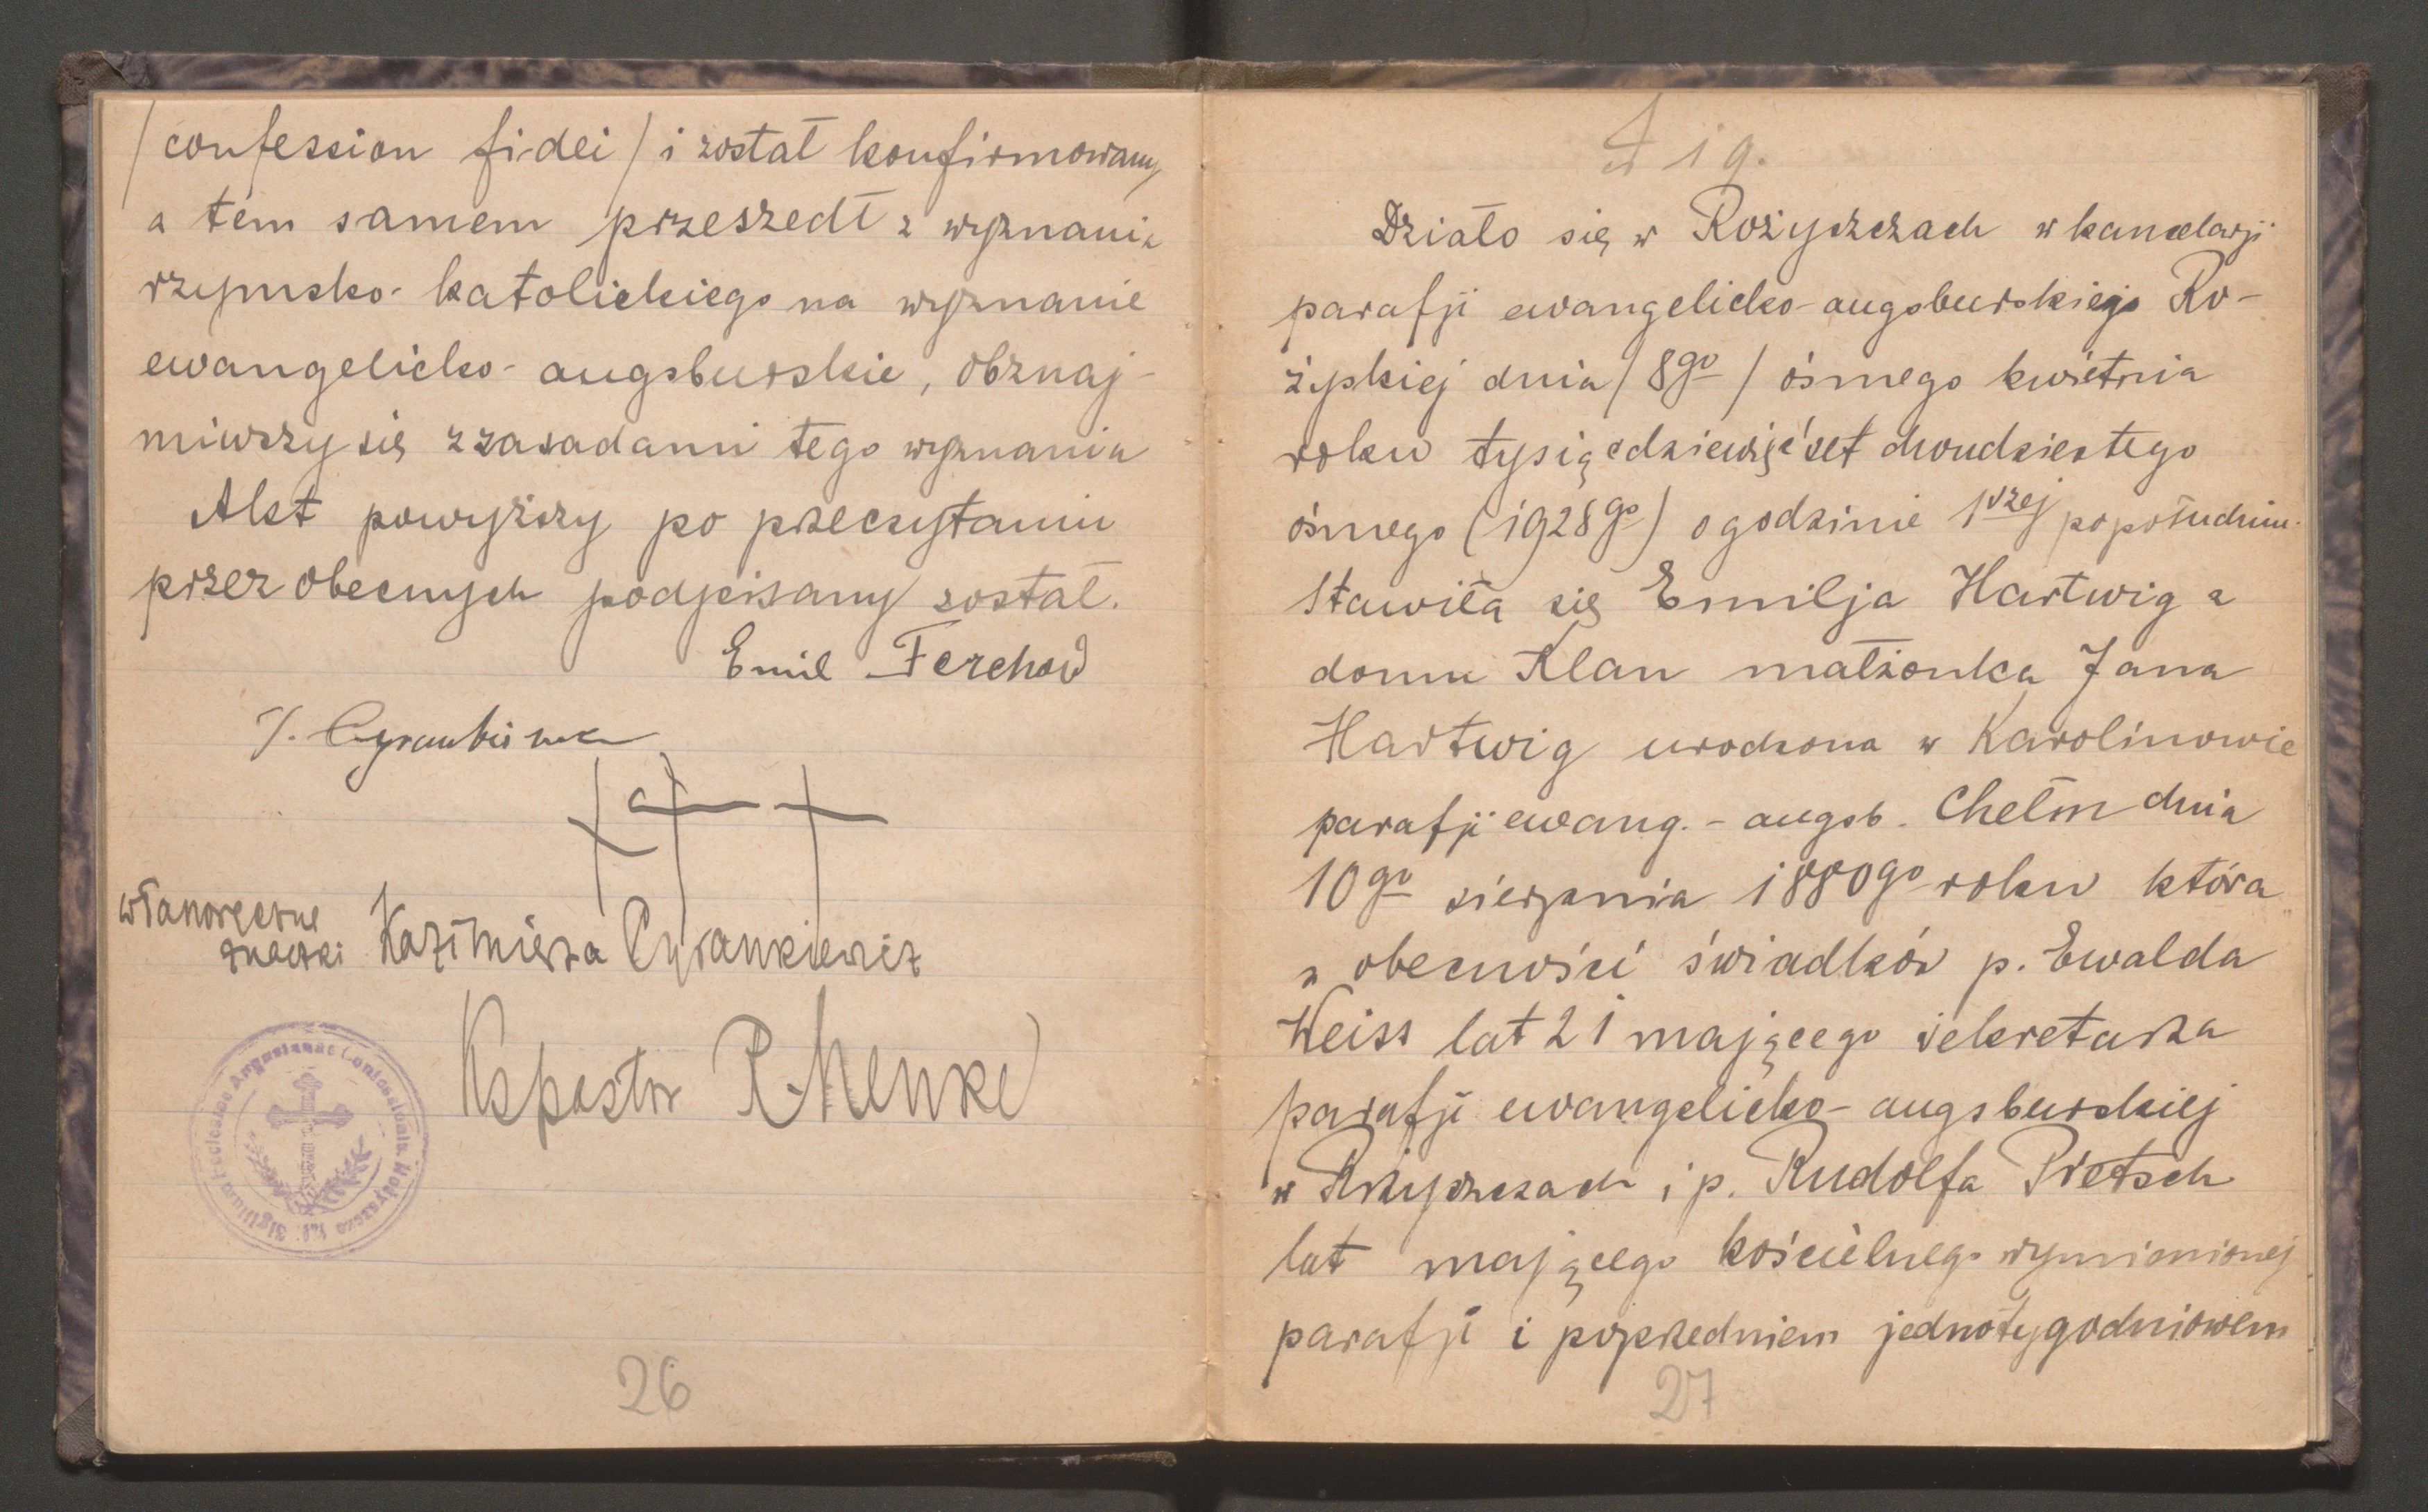 /confession fidei/ i został konfirmowany
a tem samem przeszedł z wyznania
rzymsko-katolickiego na wyznanie
ewangelicko-augsburskie, obznaj-
miwszy się z zasadami tego wyznania
Akt powyższy po przeczytaniu
przez obecnych podpisany został.
Emil Ferchow
J.
własnoręczne
znaczki Kazimierza Cyrankiewicz
Kspastor R. Henke
Sigillum Ecclesiae Augustanae Confessionis Rożyszcze
26
19.
Działo się w Rożyszczach w kancelarji
parafji ewangelicko-augsburskiego Ro-
żyskiej dnia /8go/ ósmego kwietnia
roku tysiącdziewięćset dwudziestego
ósmego (1928go) o godzinie 1szej popołudniu.
stawiła się Emilja Hartwig z
domu Klan małżonka Jana
Hartwig urodzona w Karolinowie
parafji ewang.-augsb. Chełm dnia
10go sierpnia 1880go roku która
w obecności świadków p. Ewalda
Weiss lat 21 mającego sekretarza
parafji ewangelicko-augsburskiej
w Rożyszczach i p. Rudolfa Pietsch
lat mającego kościelnego wymienionej
parafji i poprzedniem jednotygodniowem
27